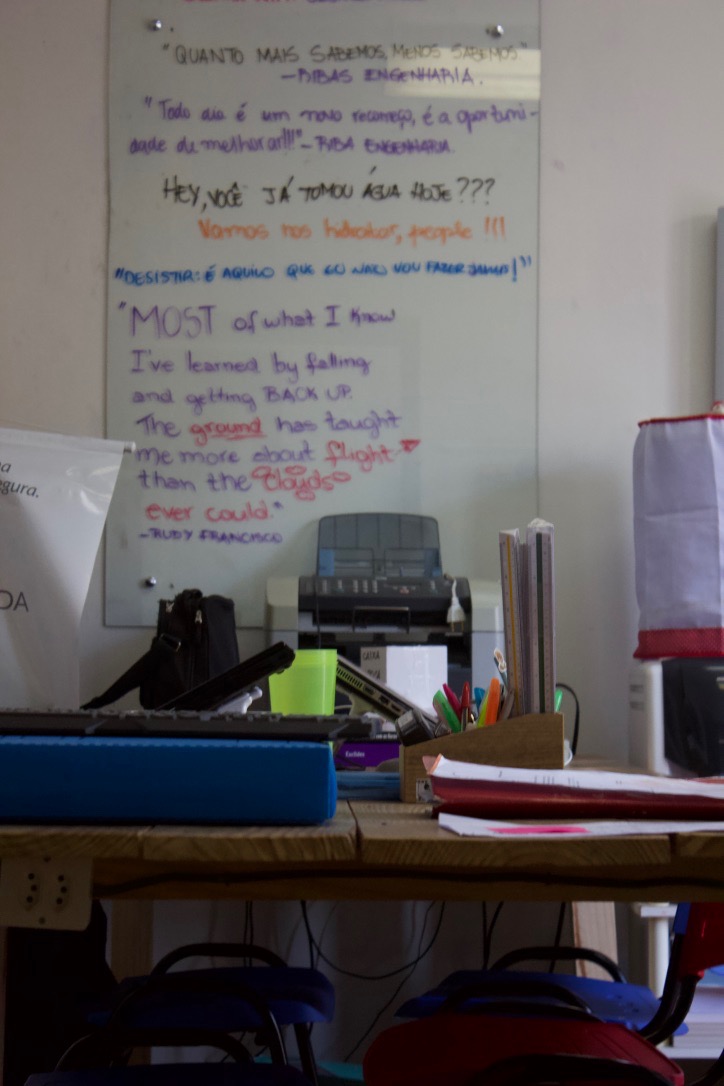 "QUANTO MAIS SABEMOS, MENOS SABEMOS"
—RIBAS ENGENHARIA.
"Todo dia é um novo recomeço, é a oportuni-
dade de melhorar!!!"—RIBA ENGENHARIA.
HEY, VOCÊ JÁ TOMOU ÁGUA HOJE???
Vamos nos hidratar, people !!!
"DESISTIR: É AQUILO QUE EU NÃO VOU FAZER JAMAIS!"
"MOST of what I know
I've learned by falling
and getting BACK UP.
The ground has taught
me more about flight
than the Clouds
ever could."
-RUDY FRANCISCO
egura.
DA
Euclides